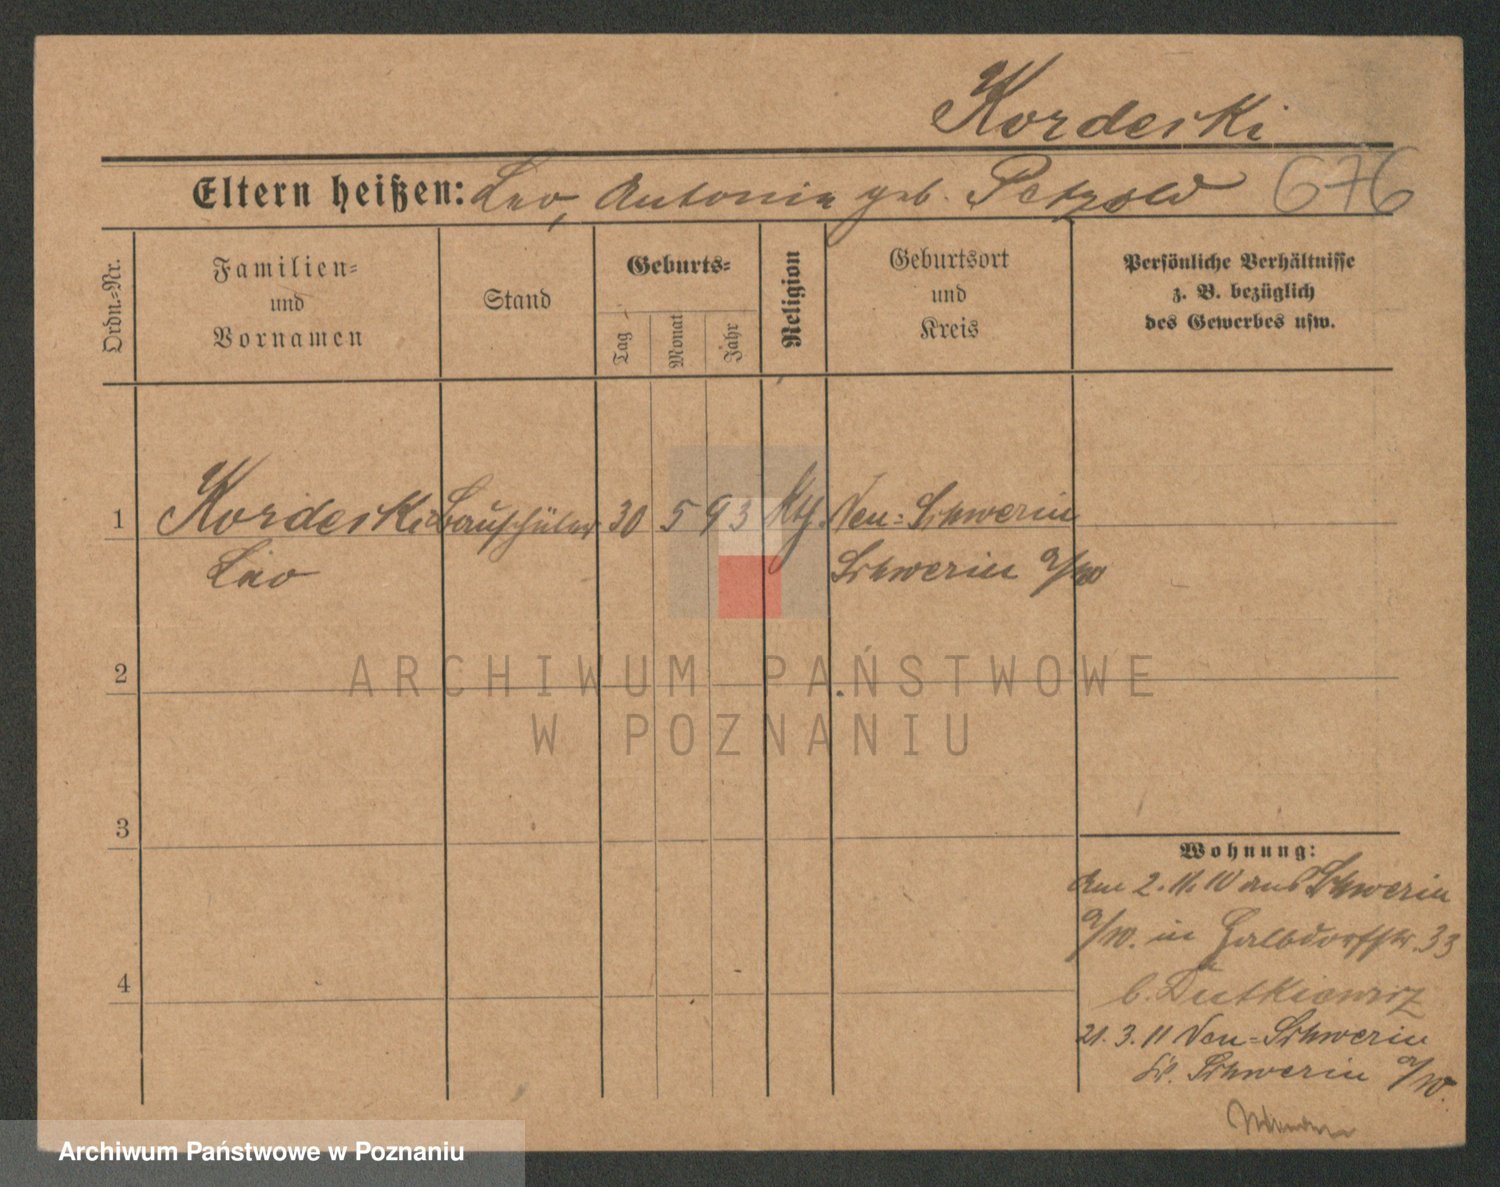 Kordeski
Eltern heißen: Leo, Antonie geb. Petzold 676
Ordn.-Nr.
Familien-
und
Vornamen
Stand
Geburts-
Tag
Monat
Jahr
Religion
Geburtsort
und
Kreis
Persönliche Verhältnisse
z. B. bezüglich
des Gewerbes usw.
1 Kordeski Bauschüler 30 5 93 Kth. Neu-Schwerin
Leo Schwerin a/W
2
3
4
Wohnung:
Am 2.11.10 aus Schwerin
a/W. in Halbdorfstr. 33
b. Dutkiewicz
21.3.11 Neu-Schwerin
Kr. Schwerin a/W.
ARCHIWUM PAŃSTWOWE
W POZNANIU
Archiwum Państwowe w Poznaniu